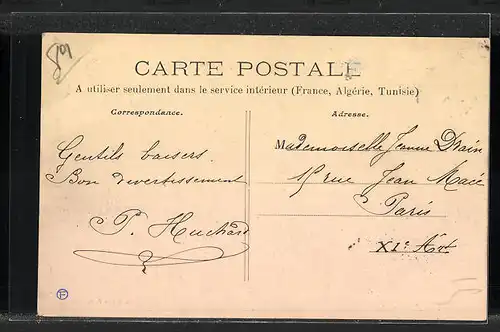 89
CARTE POSTALE
A utiliser seulement dans le service intérieur (France, Algérie, Tunisie)
Correspondance.
Adresse.
Gentils baisers.
Bon divertissement
P. Huchard
Mademoiselle Jeanne
15 rue Jean Macé
Paris
XIe Art